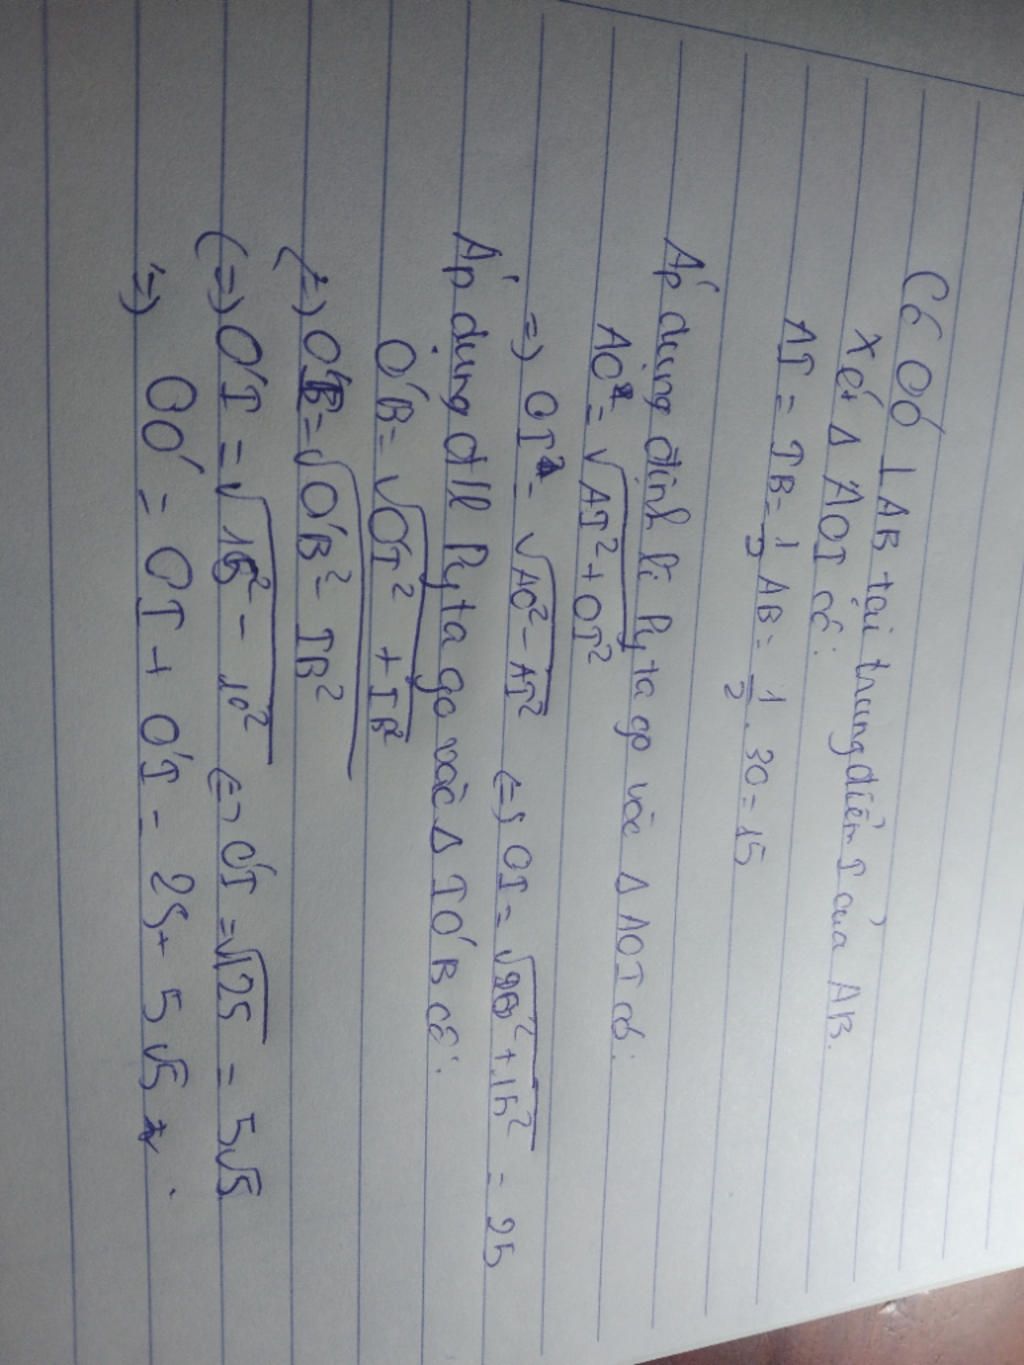 Có OO' ⊥ AB tại trung điểm I của AB.
Xét Δ AOI có:
AI = IB = 1/2 AB = 1/2 . 30 = 15
Áp dụng định lí Pytago vào Δ AOI có:
AO = √AI² + OI²
=) OI = √AO² - AI² (=) OI = √20² + 15² = 25
Áp dụng đll Pytago vào Δ IO'B có:
O'B = √O'I² + IB²
(=) O'I = √O'B² - IB²
(=) O'I = √15² - 10² (=) O'I = √125 = 5√5
=) OO' = OI + O'I = 25 + 5√5